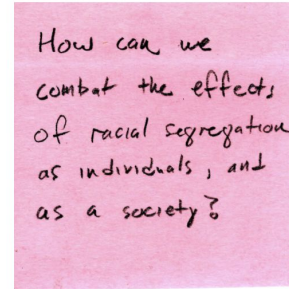 How can we
combat the effects
of racial segregation
as individuals, and
as a society?